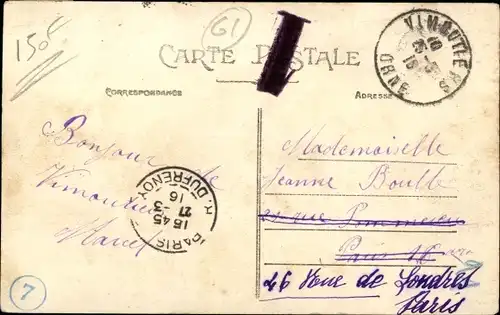 150
61
CARTE POSTALE
VIMOUTIERS
ORNE
CORRESPONDANCE
ADRESSE
Bonjour de
Vimoutiers
Marcel
PARIS
R. DUFRENOY
15 45
27-3
16
Mademoiselle
Jeanne
rue
Paris 16
46 Rue de Londres
Paris
7